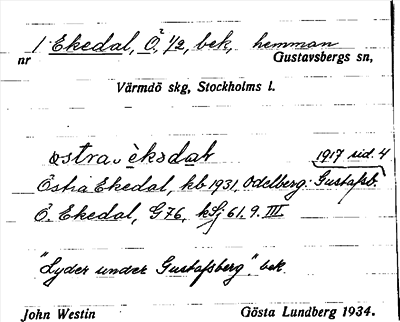 nr 1 Ekedal, Ö, 1/2, bek, hemman
Gustavsbergs sn,
Värmdö skg, Stockholms l.
östra, èkədɑt 1917 sid. 4
Östra Ekedal, kb 1931, Odelberg: Gustafsb.
Ö. Ekedal, G76, ksj 61.9.III
"Lyder under Gustafsberg" bek.
John Westin Gösta Lundberg 1934.